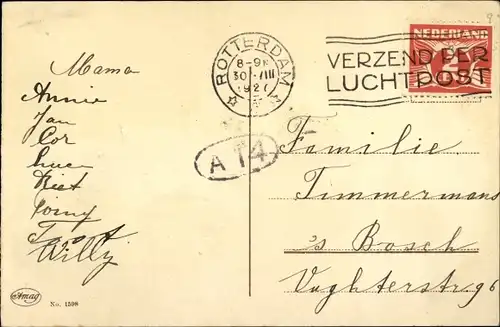 Mama
Annie
Jan
Cor
Riet
Willy
Amag
No. 1598
ROTTERDAM
8-9
30 VIII
1927
A 14
VERZEND PER
LUCHTPOST
NEDERLAND
2
Familie
Timmermans
's Bosch
Vughterstr 96